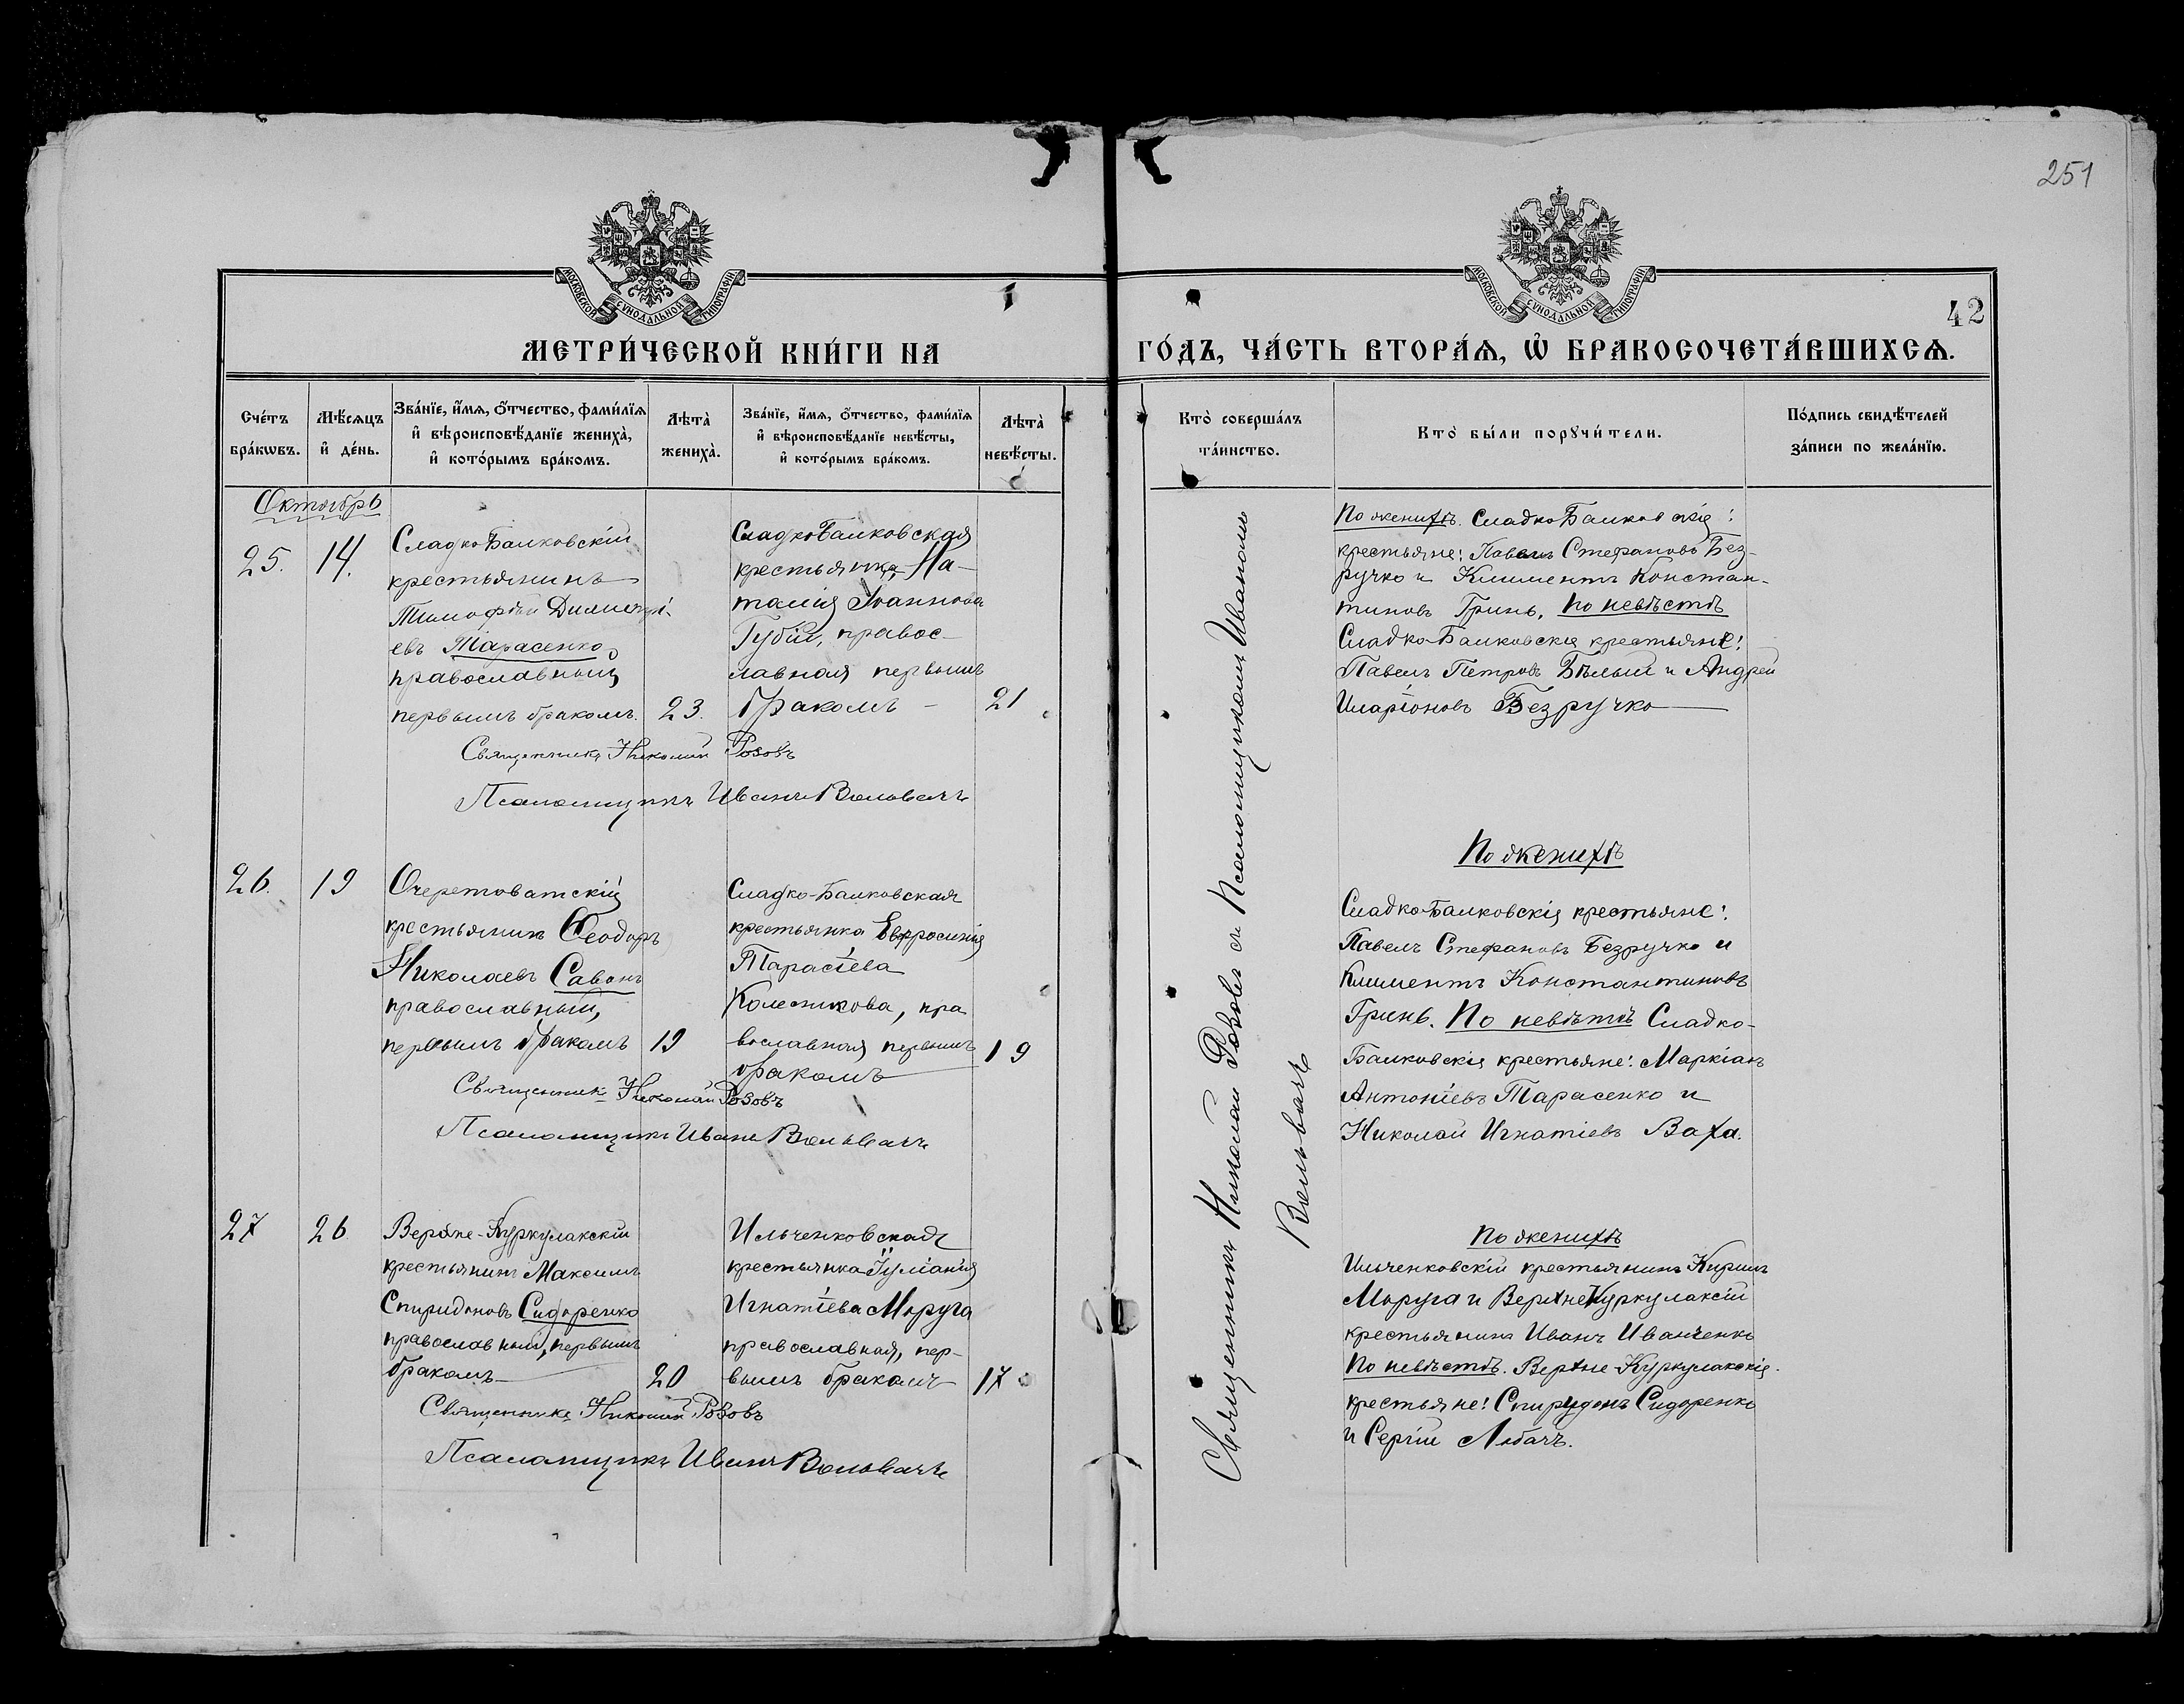 251
МОСКОВСКОЙ СУНОДАЛЬНОЙ ТИПОГРАФІИ
МОСКОВСКОЙ СУНОДАЛЬНОЙ ТИПОГРАФІИ
42
МЕТРИ́ЧЕСКОЙ КНИ́ГИ НА
ГО́ДЪ, ЧА́СТЬ ВТОРА́Ѧ, Ѽ БРАКОСОЧЕТА́ВШИХСѦ.
Сче́тъ бра́кѡвъ.
Мѣ́сѧцъ и҆ де́нь.
Зва́нїе, и҆́мѧ, ѻ҆́тчество, фами́лїѧ
и҆ вѣроисповѣ́данїе жениха̀,
и҆ кото́рымъ бра́комъ.
Лѣта̀ жениха̀.
Зва́нїе, и҆́мѧ, ѻ҆́тчество, фами́лїѧ
и҆ вѣроисповѣ́данїе невѣ́сты,
и҆ кото́рымъ бра́комъ.
Лѣта̀ невѣ́сты.
Кто̀ соверша́лъ
та́инство.
Кто̀ бы́ли порꙋчи́тели.
По́дпись свидѣ́телей
за́писи по жела́нїю.
Октябрь
25.
14.
Сладко-Балковскій
крестьянинъ
Тимофѣй Димитрі-
евъ Тарасенко,
православный
первымъ бракомъ.
23.
СладкоБалковская
крестьянка На-
талія Іоаннова
Губій, правос-
лавная первымъ
бракомъ –
21
Священникъ Николай Розовъ
Псаломщикъ Иванъ Вольвачъ
По женихѣ. СладкоБалковскіе:
крестьяне: Павелъ Стефановъ Без-
ручко и Климентъ Констан-
тиновъ Гринь. По невѣстѣ
Сладко-Балковскіе крестьяне:
Павелъ Петровъ Бѣлый и Андрей
Иларіоновъ Безручко
26.
19
Очеретоватскій
крестьянинъ Ѳеодоръ
Николаевъ Савонъ
православный,
первымъ бракомъ
19
Сладко-Балковская
крестьянка Евфросинія
Тарасіева
Колесникова, пра
вославная первымъ
бракомъ
19
Священникъ Николай Розовъ
Псаломщикъ Иванъ Вольвачъ
По женихѣ
Сладко-Балковскія крестьяне:
Павелъ Стефановъ Безручко и
Климентъ Константиновъ
Гринь. По невѣстѣ Сладко-
Балковскія крестьяне: Маркіанъ
Антоніевъ Тарасенко и
Николай Игнатіевъ Ваха.
27
26
Верхне-Куркулакскій
крестьянинъ Максимъ
Спиридоновъ Сидоренко
православный, первымъ
бракомъ
20
Ильченковская
крестьянка Іуліанія
Игнатіева Моруга
православная, пер-
вымъ бракомъ
17
Священникъ Николай Розовъ
Псаломщикъ Иванъ Вольвачъ
По женихѣ
Ильченковскій крестьянинъ Кирилъ
Моруга и ВерхнеКуркулаксій
крестьянинъ Иванъ Иванченко
По невѣстѣ. Верхне-Куркулакскіе
крестьяне: Спиридонъ Сидоренко
и Сергій Лобачъ.
Священникъ Николай Розовъ съ Псаломщикомъ Иваномъ
Вольвачъ